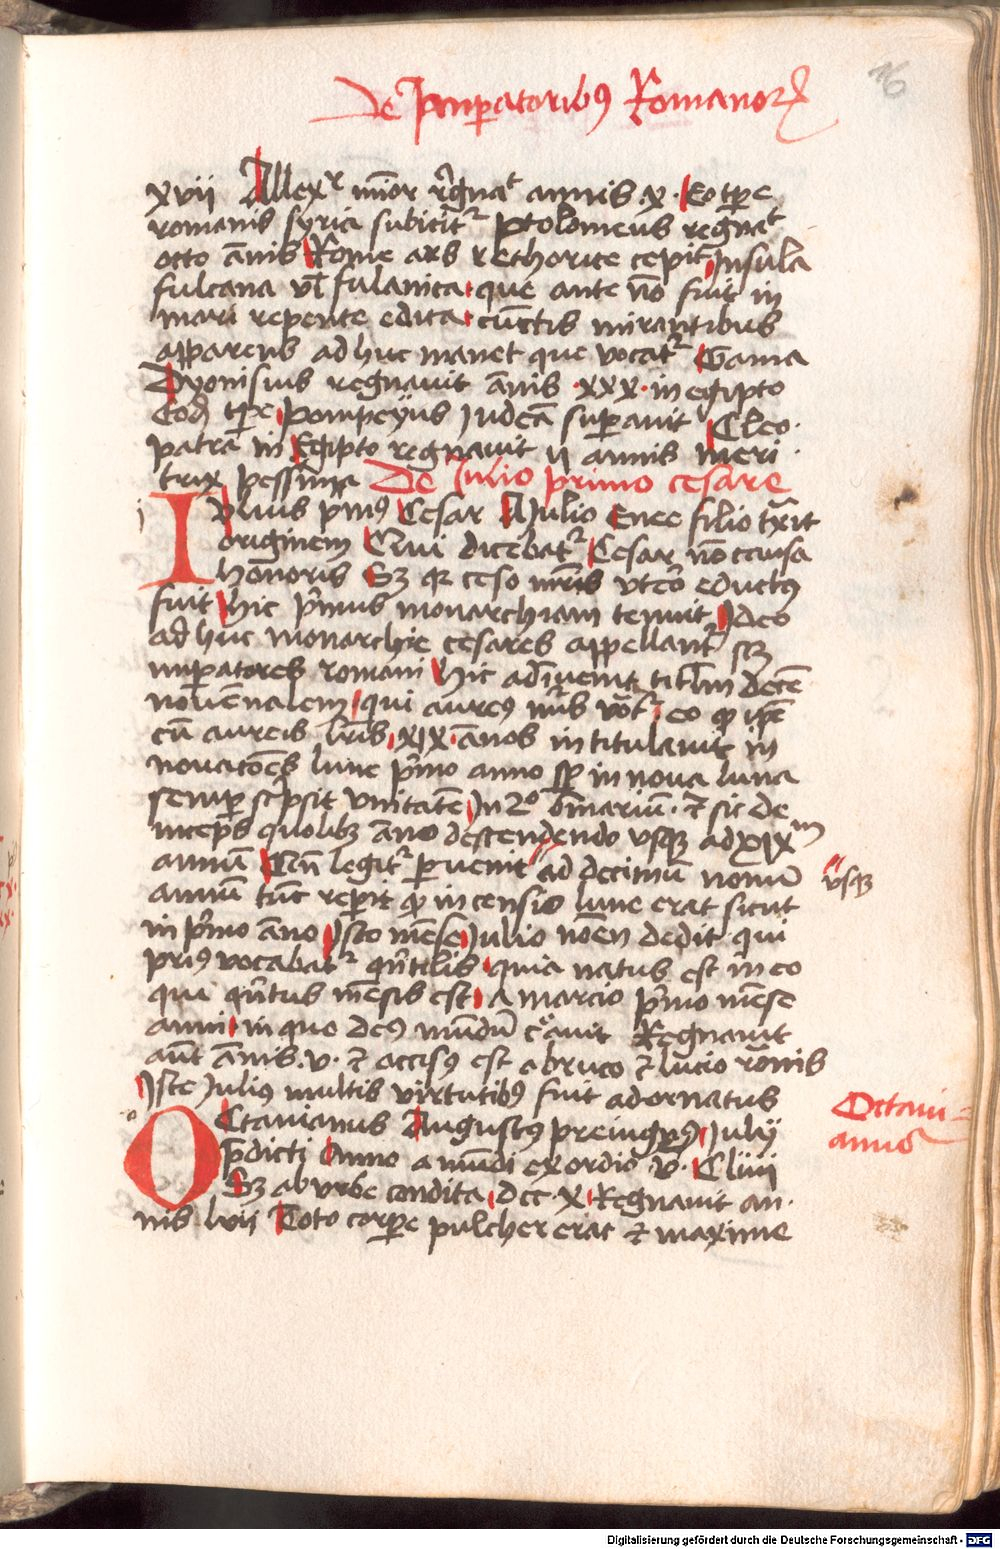 De Imperatoribꝯ Romanoꝝ
16
xvii Allexʳ mīor rēgnaᵗ annis .x. Eo tꝑe
romanis syria subicitᷣ Ptolomeus regnaᵗ
octo ānis Rome ars rethorice cepit Insula
fulcana vl̄ fulanica que ante nō fuit in
mari repente edita cūctis mirantibus
apparens ad huc manet que vocatᷣ Gama
Dyonisius regnavit ānis .xxx. in egipto
Eod̄ tꝑe Pompeyus Iudeā suꝑauit Cleo
patra in Egipto regnauit ij annis meri
trix pessima De Iulio primo cesare
IVlius pᵐꝯ Cesar A Iulio Enee filio tͣxit
originem Qui dicebatᷣ Cesar nō causa
hōnoris Sꝫ qꝛ ceso mr̄is vtero eductꝯ
fuit Hic pͥmus monarchiam tenuit Ideo
ad huc monarchie cesares appellantᷣ sꝫ
imꝑatores romani Hic adīuenit titl̄m decē
nouēnalem qui aureꝯ nūs voᵗᷣ eo ꝙ ip̄e
cū aureis lr̄is XIX ānos intitulauit in
nouatōes lune pͥmo anno sꝑ in noua luna
semꝑ sc̄psit vnitatē In 2º bīnariū ⁊ sic de
inceps quolibꝫ āno descendendo vsqꝫ ad XIXᵐ
annū Cū legitᷣ ꝑuenit ad decimū nonū
vsqꝫ
annū tūc reꝑit ꝙ incensio lune erat sicut
in pͥmo āno Isto mēse Iulio nōen dedit qui
priꝯ vocabatᷣ qn̄tilis quia natus est in eo
qui qn̄tus mēsis est a marcio pͥmo mēse
anni in quo deꝯ mūdū cͤauit Regnauit
aūt ānis .v. ⁊ accisꝯ est a bruto ⁊ lucio rōnis
Iste Iuliꝯ multis virtutibꝯ fuit adornatus
Octaui=
anno
OCtauianus Augustꝯ preuignꝯ Iulij
p̄dicti Anno a mūdi exordio v. Cliiij
Sꝫ ab vrbe condita .dcc.x. Regnauit an
nis lvij Toto corꝑe pulcher erat ⁊ maxime
Digitalisierung gefördert durch die Deutsche Forschungsgemeinschaft - DFG